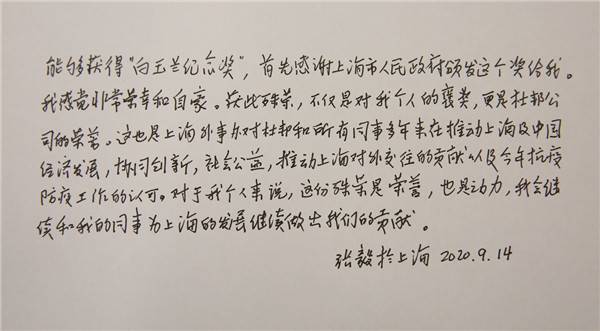 能够获得“白玉兰纪念奖”，首先感谢上海市人民政府颁发这个奖给我。
我感觉非常荣幸和自豪。获此殊荣，不仅是对我个人的褒奖，更是杜邦公
司的荣誉。这也是上海外事办对杜邦和所有同事多年来在推动上海及中国
经济发展，协同创新，社会公益，推动上海对外交往的贡献以及今年抗疫
防疫工作的认可。对于我个人来说，这份殊荣是荣誉，也是动力，我会继
续和我的同事为上海的发展继续做出我们的贡献。
张毅於上海 2020.9.14